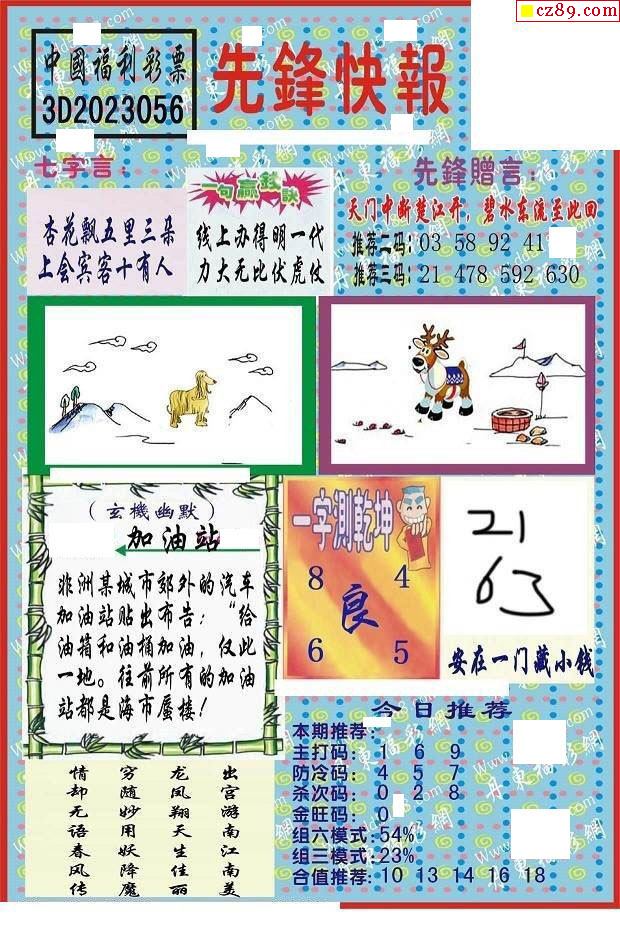 cz89.com
中國福利彩票
3D2023056
先鋒快報
七字言:
杏花飘五里三朵
上会宾客十有人
一句赢钱訣
线上办得明一代
力大无比伏虎仗
先鋒贈言:
天门中断楚江开，碧水东流至此回
推荐二码: 03 58 92 41
推荐三码: 21 478 592 630
(玄機幽默)
加油站
非洲某城市郊外的汽车
加油站贴出布告："给
油箱和油桶加油，仅此
一地。往前所有的加油
站都是海市蜃楼！
一字测乾坤
8 4
良
6 5
21
63
安在一门藏小钱
今日推荐
本期推荐:
主打码: 1 6 9
防冷码: 4 5 7
杀次码: 0 2 8
金旺码: 0
组六模式:54%
组三模式:23%
合值推荐: 10 13 14 16 18
情 穷 龙 出
却 随 凤 宫
无 妙 翔 游
语 用 天 南
春 妖 生 江
风 降 佳 南
传 魔 丽 美